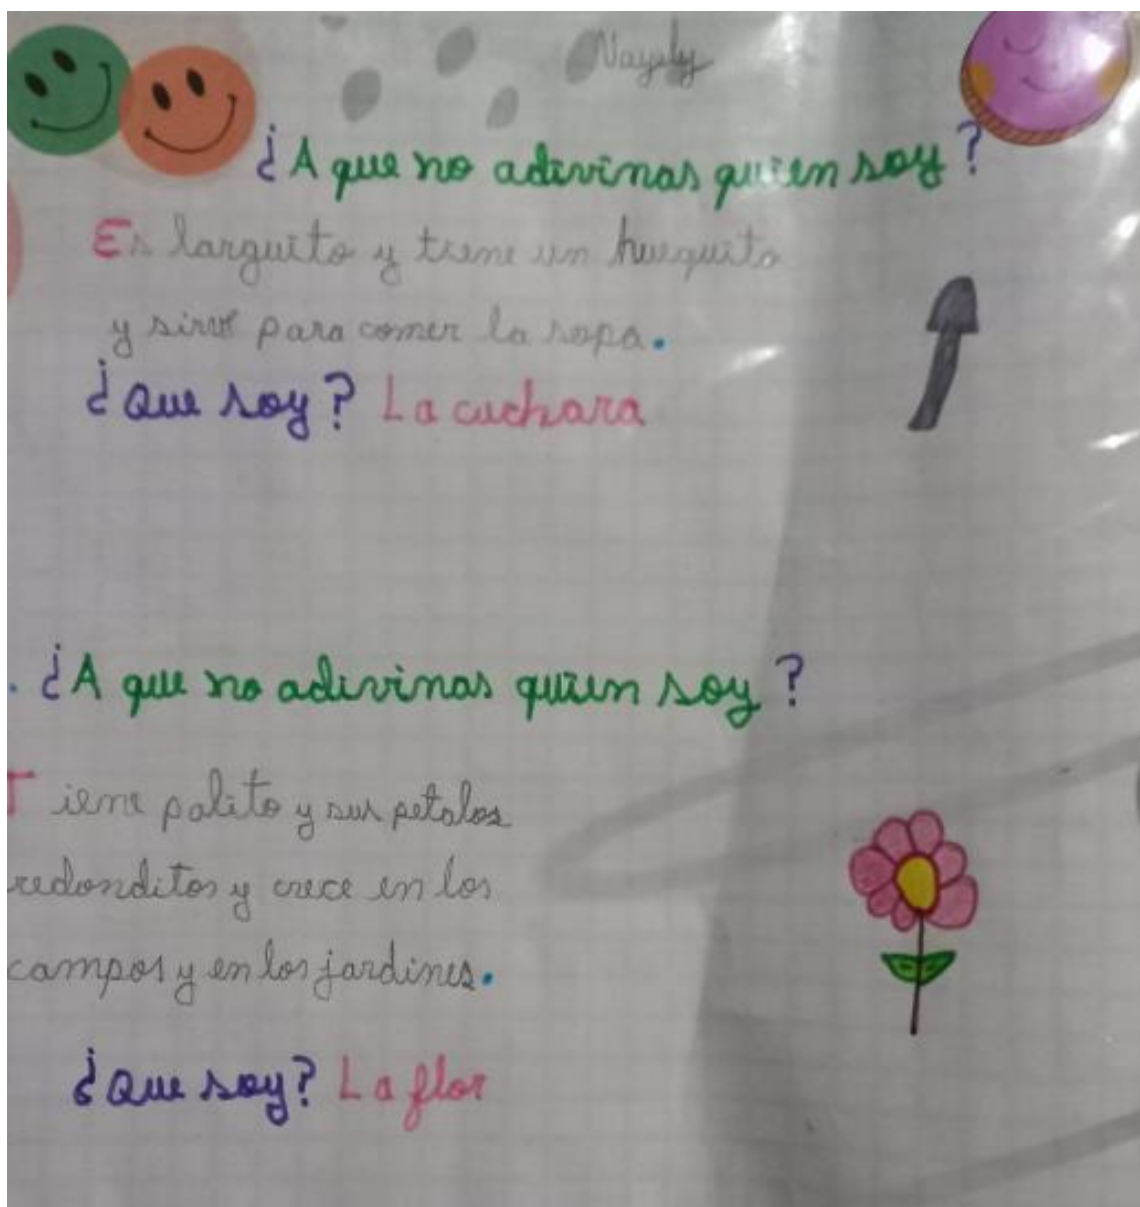 Nayely
¿A que no adivinas quien soy?
Es larguito y tiene un huequito
y sirve para comer la sopa.
¿Que soy? La cuchara
. ¿A que no adivinas quien soy?
Tiene palito y sus petalos
redonditos y crece en los
campos y en los jardines.
¿Que soy? La flor